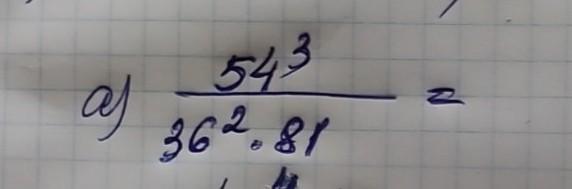 а) 54³ / 36² · 81 =